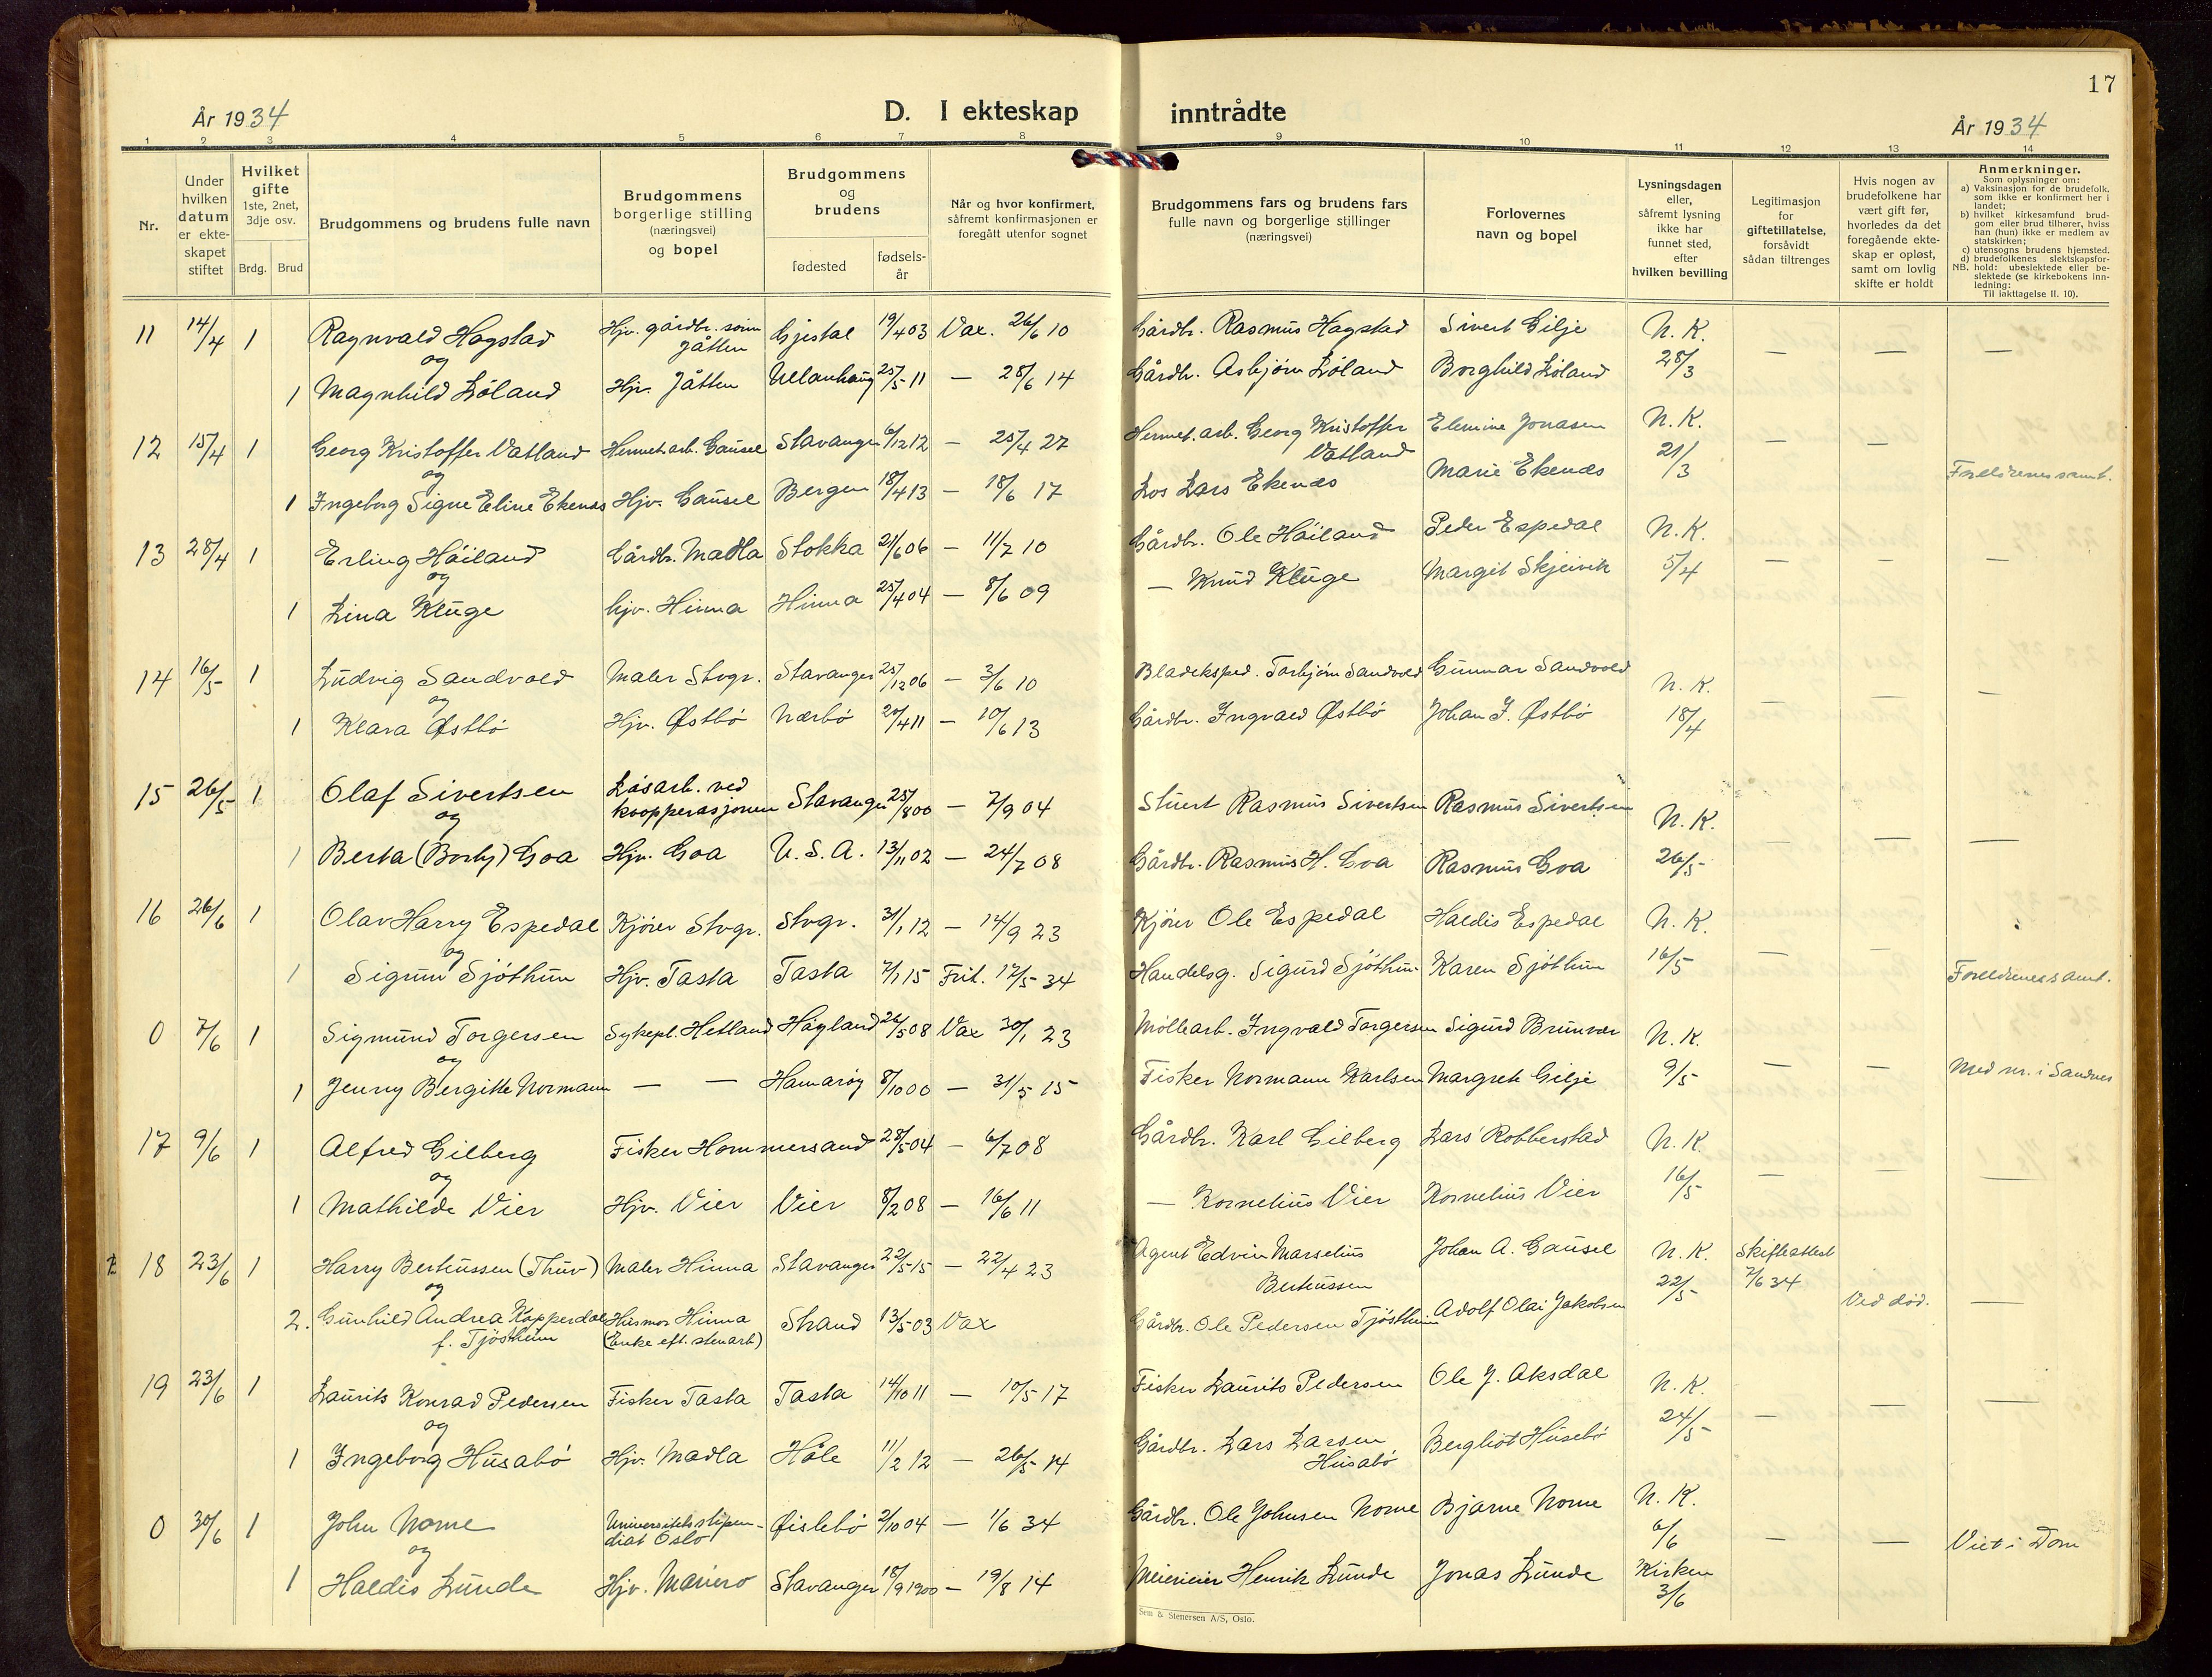 17
År 1934
D. I ekteskap inntrådte
År 1934
1 2 3 4 5 6 7 8 9 10 11 12 13 14
Nr.
Under hvilken datum er ekteskapet stiftet
Hvilket gifte 1ste, 2net, 3dje osv.
Brdg. Brud
Brudgommens og brudens fulle navn
Brudgommens borgerlige stilling (næringsvei) og bopel
Brudgommens og brudens
fødested
fødselsår
Når og hvor konfirmert, såfremt konfirmasjonen er foregått utenfor sognet
Brudgommens fars og brudens fars fulle navn og borgerlige stillinger (næringsvei)
Forlovernes navn og bopel
Lysningsdagen eller, såfremt lysning ikke har funnet sted, efter hvilken bevilling
Legitimasjon for giftetillatelse, forsåvidt sådan tiltrenges
Hvis nogen av brudefolkene har vært gift før, hvorledes da det foregående ekteskap er opløst, samt om lovlig skifte er holdt
Anmerkninger.
Som oplysninger om:
a) Vaksinasjon for de brudefolk. som ikke er konfirmert her i landet;
b) hvilket kirkesamfund brudgom eller brud tilhører, hviss han (hun) ikke er medlem av statskirken;
c) utensogns brudens hjemsted.
d) brudefolkenes slektskapsforhold: ubeslektede eller beslektede (se kirkebokens innledning:
NB.
Til iakttagelse II. 10).
11 14/4 1 Ragnvald Hagstad Hjv. gårdbr. sønn Jåtten Gjestal 19/4 03 Vax. 26/6 10 Gårdbr. Rasmus Hagstad Sivert Gilje N. K. — — —
og
1 Magnhild Løland Hjv. Jåtten Ullanhaug 25/5 11 — 28/6 14 Gårdbr. Asbjørn Løland Borghild Løland 28/3
12 15/4 1 Georg Kristoffer Vatland Hermet. arb. Gausel Stavanger 6/12 12 — 25/4 27 Hermet. arb. Georg Kristoffer Vatland Elemine Jonasen N. K. — —
og
1 Ingeborg Signe Eline Ekenæs Hjv. Gausel Bergen 18/4 13 — 18/6 17 Los Lars Ekenes Marie Ekenæs 21/3 Foreldrenes samt.
13 28/4 1 Erling Håiland Gårdbr. Madla Stokka 21/6 06 — 11/7 10 Gårdbr. Ole Håiland Peder Espedal N. K. — — —
og
1 Lina Kluge hjv. Hinna Hinna 25/4 04 — 8/6 09 — Knud Kluge Margit Skjeivik 5/4
14 16/5 1 Ludvig Sandvold Maler Stvgr. Stavanger 25/12 06 — 3/6 10 Bladeksped. Torbjørn Sandvold Gunnar Sandvold N. K. — — —
og
1 Klara Østbø Hjv. Østbø Nærbø 20/4 11 — 10/6 13 Gårdbr. Ingvald Østbø Johan J. Østbø 18/4
15 26/5 1 Olaf Sivertsen Løsarb. ved koopperasjonen Stavanger 25/8 00 — 7/9 04 Stuert Rasmus Sivertsen Rasmus Sivertsen N. K. — — —
og
1 Berta (Borly) Goa Hjv. Goa U. S. A. 13/11 02 — 24/7 08 Gårdbr. Rasmus H. Goa Rasmus Goa 26/5
16 26/6 1 Olav Harry Espedal Kjører Stvgr. Stvgr. 31/1 12 — 14/9 23 Kjører Ole Espedal Haldis Espedal N. K. — —
og
1 Sigrun Sjøthun Hjv. Tasta Tasta 7/1 15 Frit. 17/5 34 Handelsg. Sigurd Sjøthun Karen Sjøthun 16/5 Foreldrenes samt.
0 7/6 1 Sigmund Torgersen Sykepl. Hetland Høyland 26/5 08 Vax 30/1 23 Møllearb. Ingvald Torgersen Sigurd Brunvær N. K. — —
og
1 Jenny Bergitte Normann — — Hamarøy 8/10 00 — 31/5 15 Fisker Normann Karlsen Margrete Gilje 9/5 Med nr. i Sandnes
17 9/6 1 Alfred Gilberg Fisker Hommersand 28/5 04 — 6/7 08 Gårdbr. Karl Gilberg Lars Robberstad N. K. — — —
og
1 Mathilde Vier Hjv. Vier Vier 8/2 08 — 16/6 11 — Kornelius Vier Kornelius Vier 16/5
18 23/6 1 Harry Bertussen (Thuv) Maler Hinna Stavanger 22/5 15 — 22/4 23 Agent Edvin Marselius Bertussen Johan A. Gausel N. K. 22/5 Skifteattest 7/6 34
og
2. Gunhild Andrea Kopperdal f. Tjøsthun Husmor Hinna (Enke eft. stenarb) Strand 13/5 03 Vax Gårdbr. Ole Pedersen Tjøsthun Adolf Olai Jakobsen Ved død. —
19 23/6 1 Laurits Konrad Pedersen Fisker Tasta Tasta 14/10 11 — 10/5 17 Fisker Laurits Pedersen Ole J. Aksdal N. K. — — —
og
1 Ingeborg Husabø Hjv. Madla Høle 11/2 12 — 26/5 14 Gårdbr. Lars Larsen Husabø Bergliot Husebø 24/5
0 30/6 1 John Nome Universitetsstipendiat Oslo Øislebø 2/10 04 — 1/6 34 Gårdbr. Ole Johnsen Nome Bjarne Nome N. K. 6/6 — —
og
1 Haldis Lunde Hjv. Mariero Stavanger 18/9 1900 — 19/8 14 Meierieier Henrik Lunde Jonas Lunde Kirken 3/6 Viet i Dom
Sem & Stenersen A/S, Oslo.